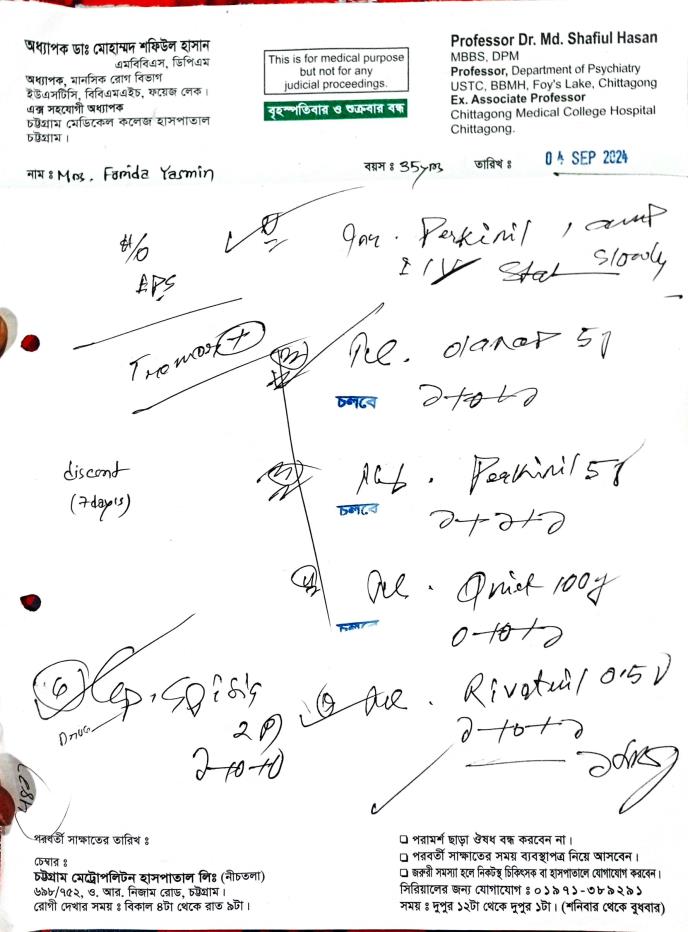 অধ্যাপক ডাঃ মোহাম্মদ শফিউল হাসান
এমবিবিএস, ডিপিএম
অধ্যাপক, মানসিক রোগ বিভাগ
ইউএসটিসি, বিবিএমএইচ, ফয়েজ লেক।
এক্স সহযোগী অধ্যাপক
চট্টগ্রাম মেডিকেল কলেজ হাসপাতাল
চট্টগ্রাম।
This is for medical purpose
but not for any
judicial proceedings.
বৃহস্পতিবার ও শুক্রবার বন্ধ
Professor Dr. Md. Shafiul Hasan
MBBS, DPM
Professor, Department of Psychiatry
USTC, BBMH, Foy's Lake, Chittagong
Ex. Associate Professor
Chittagong Medical College Hospital
Chittagong.
নাম ঃ Mrs. Farida Yasmin
বয়স ঃ 35yrs
তারিখ ঃ 04 SEP 2024
H/O
EPS
Inj. Perkinil 1 amp
I/V Stat Slowly
Tremor +
olanap 5
চলবে
১+০+১
discont
(7days)
Perkinil 5
চলবে
১+১+১
Quiet 100
চলবে
0+0+১
6
2
১+0+0
Rivotril 0.5
১+0+১
পরবর্তী সাক্ষাতের তারিখ ঃ
চেম্বার ঃ
চট্টগ্রাম মেট্রোপলিটন হাসপাতাল লিঃ (নীচতলা)
৬৯৮/৭৫২, ও. আর. নিজাম রোড, চট্টগ্রাম।
রোগী দেখার সময় ঃ বিকাল ৪টা থেকে রাত ৯টা।
পরামর্শ ছাড়া ঔষধ বন্ধ করবেন না।
পরবর্তী সাক্ষাতের সময় ব্যবস্থাপত্র নিয়ে আসবেন।
জরুরী সমস্যা হলে নিকটস্থ চিকিৎসক বা হাসপাতালে যোগাযোগ করবেন।
সিরিয়ালের জন্য যোগাযোগ ঃ ০১৯৭১-৩৮৯২৯১
সময় ঃ দুপুর ১২টা থেকে দুপুর ১টা। (শনিবার থেকে বুধবার)